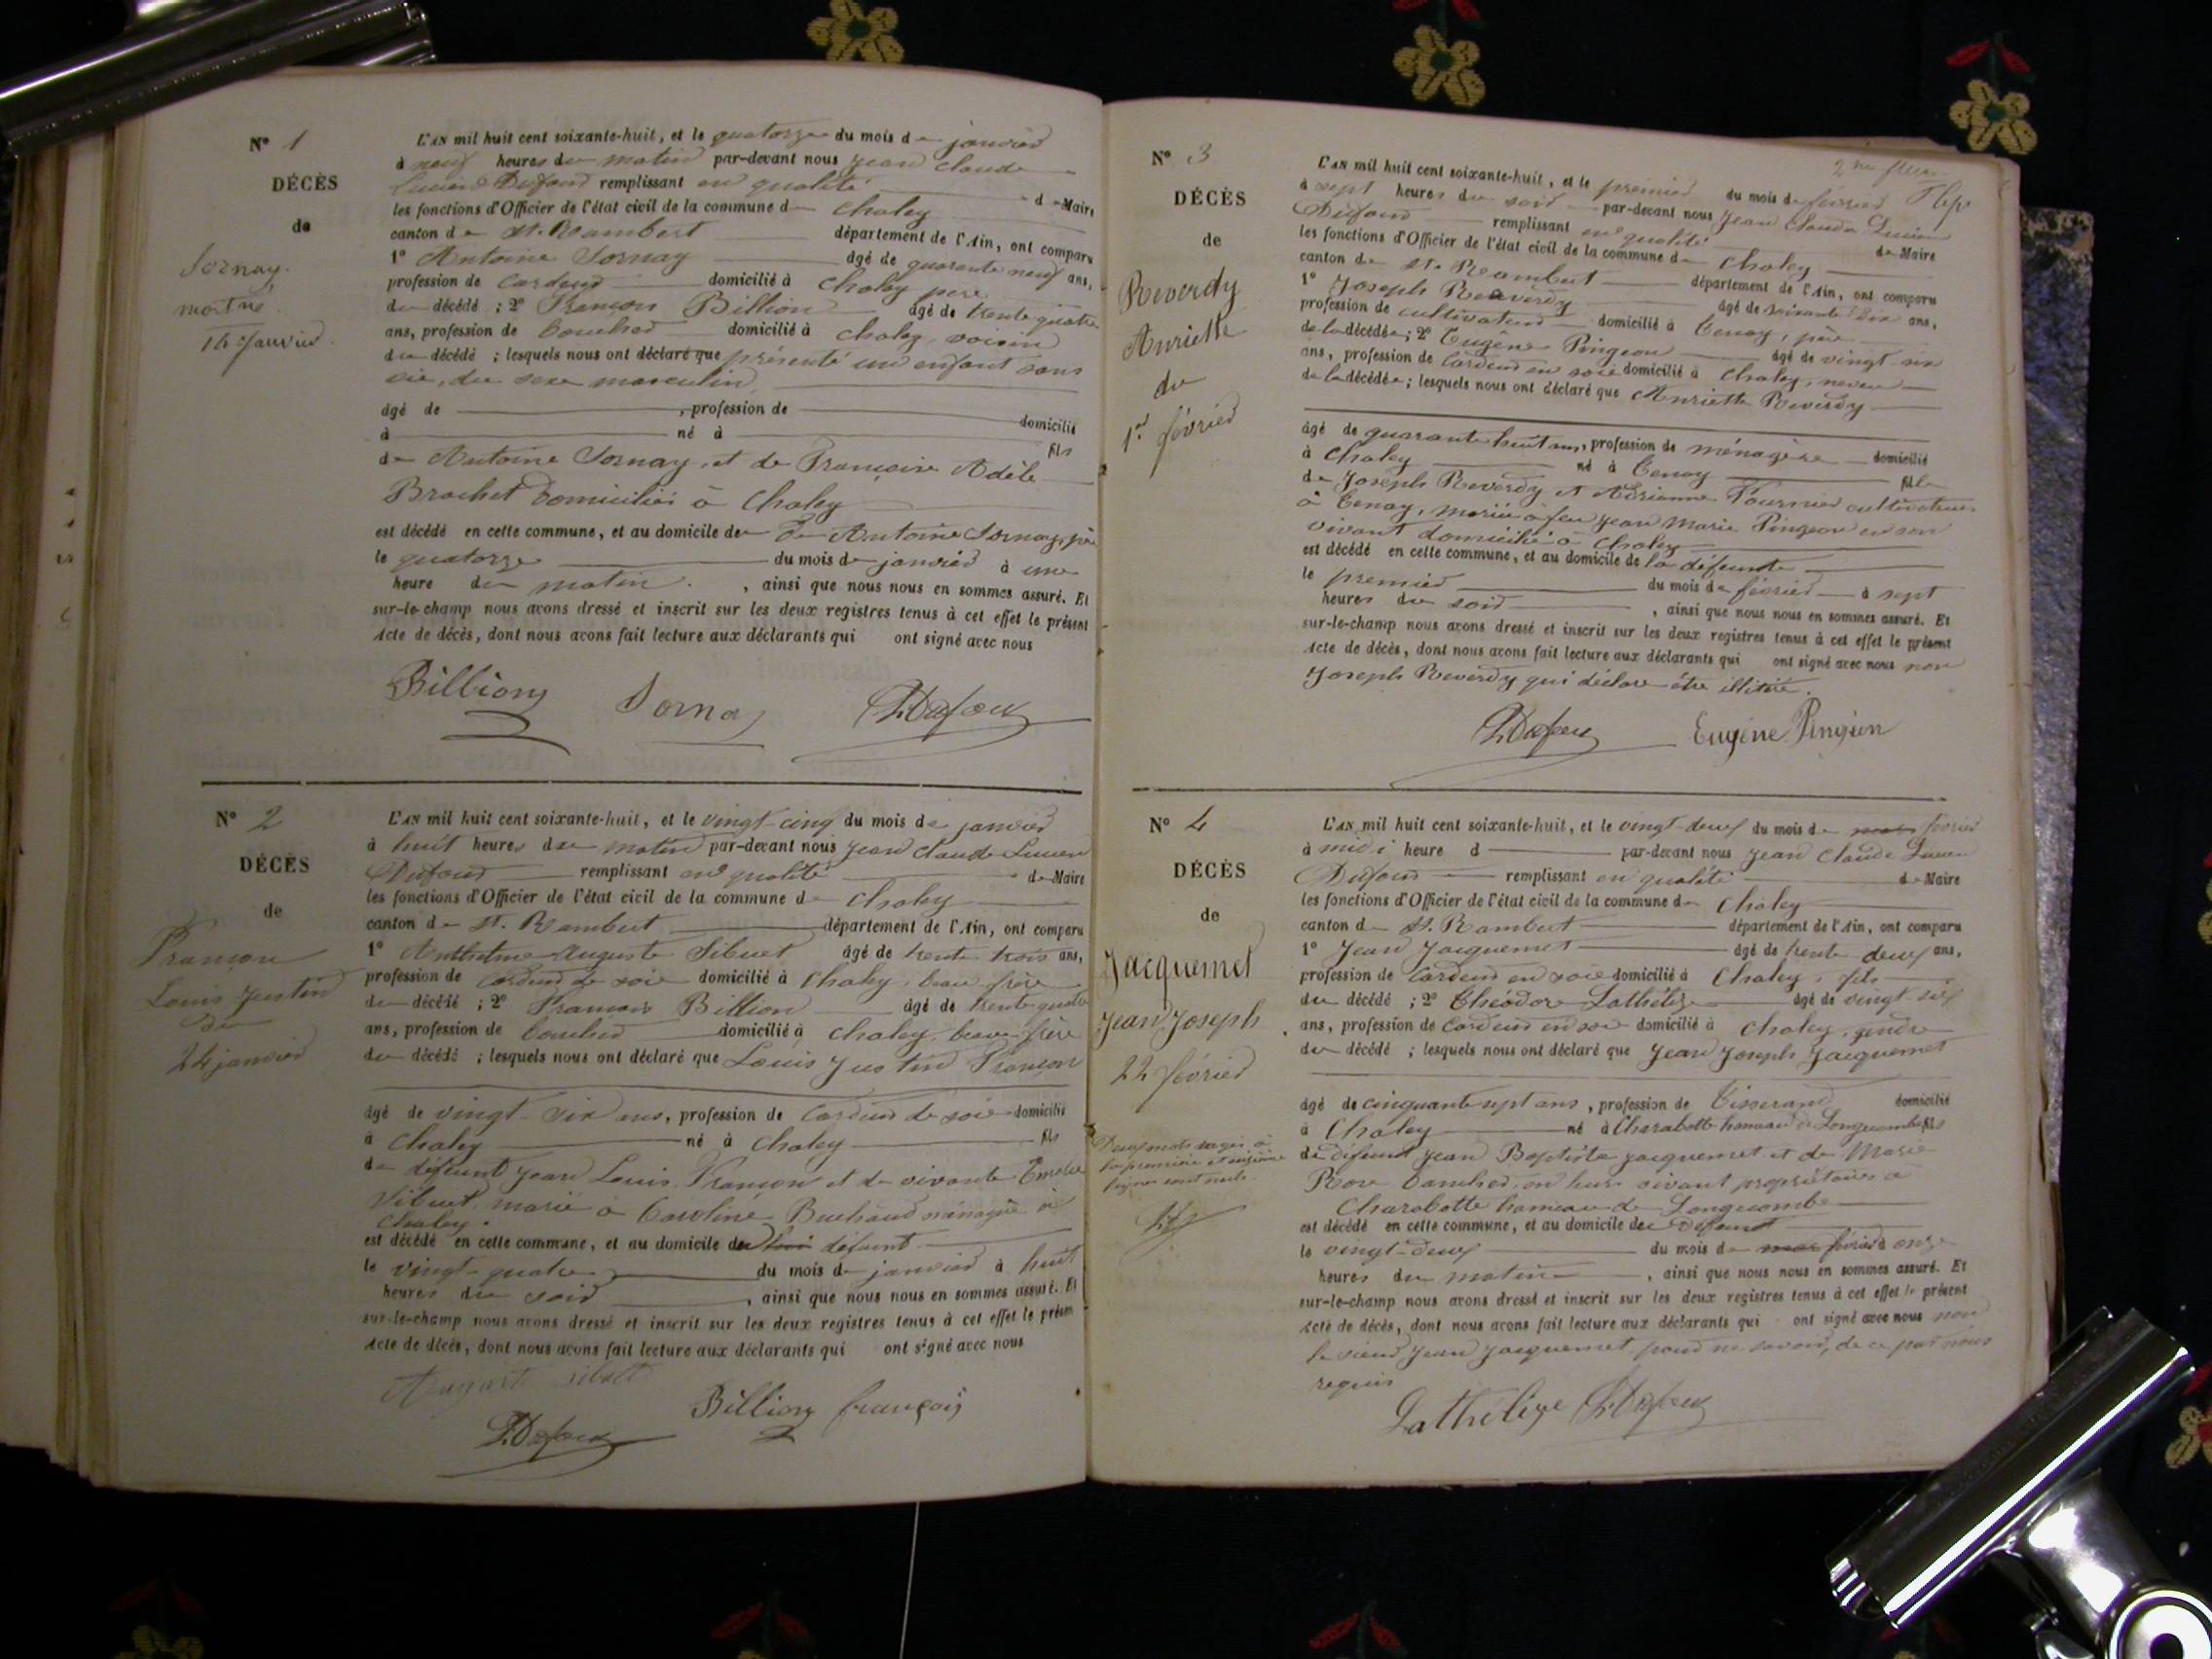 N° 1
DÉCÈS
de
Sornay
mort né
14 janvier
L'AN mil huit cent soixante-huit, et le quatorze du mois de janvier
à neuf heures du matin par-devant nous jean claude
Lucien Dufour remplissant en qualité de Maire
les fonctions d'Officier de l'état civil de la commune de Chaley
canton de St. Rambert département de l'Ain, ont comparu
1° Antoine Sornay âgé de quarante neuf ans,
profession de Cardeur domicilié à Chaley père
du décédé ; 2° François Billion âgé de trente quatre
ans, profession de boucher domicilié à Chaley, voisin
du décédé ; lesquels nous ont déclaré que présenté un enfant sans
vie, du sexe masculin
âgé de , profession de domicilié
à né à fils
de Antoine Sornay, et de Françoise Adèle
Brochet domiciliés à Chaley
est décédé en cette commune, et au domicile de Antoine Sornay, père
le quatorze du mois de janvier à une
heure du matin , ainsi que nous nous en sommes assuré. Et
sur-le-champ nous avons dressé et inscrit sur les deux registres tenus à cet effet le présent
Acte de décès, dont nous avons fait lecture aux déclarants qui ont signé avec nous
Billion Sornay L. Dufour
N° 2
DÉCÈS
de
Françon
Louis justin
du
24 janvier
L'AN mil huit cent soixante-huit, et le vingt-cinq du mois de janvier
à huit heures du matin par-devant nous jean claude Lucien
Dufour remplissant en qualité de Maire
les fonctions d'Officier de l'état civil de la commune de Chaley
canton de St. Rambert département de l'Ain, ont comparu
1° Anthelme Auguste Sibuet âgé de trente trois ans,
profession de Cardeur de soie domicilié à Chaley, beau frère
du décédé ; 2° François Billion âgé de trente quatre
ans, profession de boucher domicilié à Chaley, beau-frère
du décédé ; lesquels nous ont déclaré que Louis justin Françon
âgé de vingt-six ans, profession de Cardeur de soie domicilié
à Chaley né à Chaley fils
de défunt jean Louis Françon et de vivante
Sibuet, marié à Caroline ménagère à
Chaley.
est décédé en cette commune, et au domicile du défunt
le vingt-quatre du mois de janvier à huit
heures du soir , ainsi que nous nous en sommes assuré. Et
sur-le-champ nous avons dressé et inscrit sur les deux registres tenus à cet effet le présent
Acte de décès, dont nous avons fait lecture aux déclarants qui ont signé avec nous
Auguste Sibuet
Billion françois
L. Dufour
N° 3
DÉCÈS
de
Reverdy
Anriette
du
1er février
L'AN mil huit cent soixante-huit, et le premier du mois de février
à sept heures du soir par-devant nous jean Claude Lucien
Dufour remplissant en qualité de Maire
les fonctions d'Officier de l'état civil de la commune de Chaley
canton de St. Rambert département de l'Ain, ont comparu
1° joseph Reverdy âgé de soixante Dix ans,
profession de cultivateur domicilié à Tenay, père
de la décédée ; 2° Eugène Pingeon âgé de vingt six
ans, profession de Cardeur en soie domicilié à Chaley, neveu
de la décédée ; lesquels nous ont déclaré que Anriette Reverdy
âgé de quarante huit ans, profession de ménagère domicilié
à Chaley né à Tenay fille
de joseph Reverdy et Adrianne Fournier cultivateurs
à Tenay, mariée à feu jean Marie Pingeon en son
vivant domicilié à Chaley
est décédé en cette commune, et au domicile de la défunte
le premier du mois de février à sept
heures du soir , ainsi que nous nous en sommes assuré. Et
sur-le-champ nous avons dressé et inscrit sur les deux registres tenus à cet effet le présent
Acte de décès, dont nous avons fait lecture aux déclarants qui ont signé avec nous non
joseph Reverdy qui déclare être illitéré.
L. Dufour Eugène Pingeon
N° 4
DÉCÈS
de
Jacquemet
jean joseph
22 février
Deux mots rayés à
la première et
lignes sont nuls
L'AN mil huit cent soixante-huit, et le vingt-deux du mois de mars février
à midi heure d par-devant nous jean Claude Lucien
Dufour remplissant en qualité de Maire
les fonctions d'Officier de l'état civil de la commune de Chaley
canton de St. Rambert département de l'Ain, ont comparu
1° jean jacquemet âgé de trente deux ans,
profession de Cardeur en soie domicilié à Chaley, fils
du décédé ; 2° Théodore Lathélize âgé de vingt six
ans, profession de Cardeur en soie domicilié à Chaley, gendre
du décédé ; lesquels nous ont déclaré que jean joseph jacquemet
âgé de cinquante sept ans, profession de Tisserand domicilié
à Chaley né à Charabotte hameau de Longecombe fils
de défunt jean Baptiste jacquemet et de Marie
Rose en leur vivant propriétaires à
Charabotte hameau de Longecombe
est décédé en cette commune, et au domicile du défunt
le vingt-deux du mois de mars février à onze
heures du matin , ainsi que nous nous en sommes assuré. Et
sur-le-champ nous avons dressé et inscrit sur les deux registres tenus à cet effet le présent
Acte de décès, dont nous avons fait lecture aux déclarants qui ont signé avec nous non
le sieur jean jacquemet pour ne savoir, de ce par nous
requis
Lathelize L. Dufour